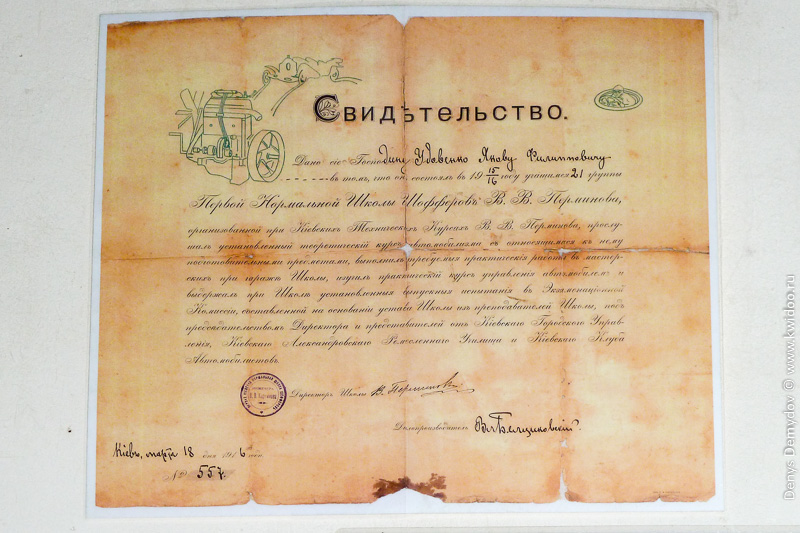 Свидѣтельство.
Дано сіе Господину Удовенко Якову Филипповичу
въ томъ, что онъ состоялъ въ 19 15/16 году учащимся 21 группы
Первой Нормальной Школы Шофферовъ В. В. Перминова,
организованной при Кіевскихъ Техническихъ Курсахъ В. В. Перминова, прослу-
шалъ установленный теоретическій курсъ автомобилизма съ относящимися къ нему
подготовительными предметами, выполнилъ требуемыя практическія работы въ мастер-
скихъ при гаражѣ Школы, изучилъ практическій курсъ управленія автомобилемъ и
выдержалъ при Школѣ установленныя выпускныя испытанія въ Экзаменаціонной
Комиссіи, составленной на основаніи устава Школы изъ преподавателей Школы, подъ
предсѣдательствомъ Директора и представителей отъ Кіевскаго Городского Управ-
ленія, Кіевскаго Александровскаго Ремесленнаго Училища и Кіевскаго Клуба
Автомобилистовъ.
Директоръ Школы В. Перминовъ
Дѣлопроизводитель
Кіевъ, марта 18 дня 1916 года
№ 557.
Denys Demydov © www.kwidoo.ru